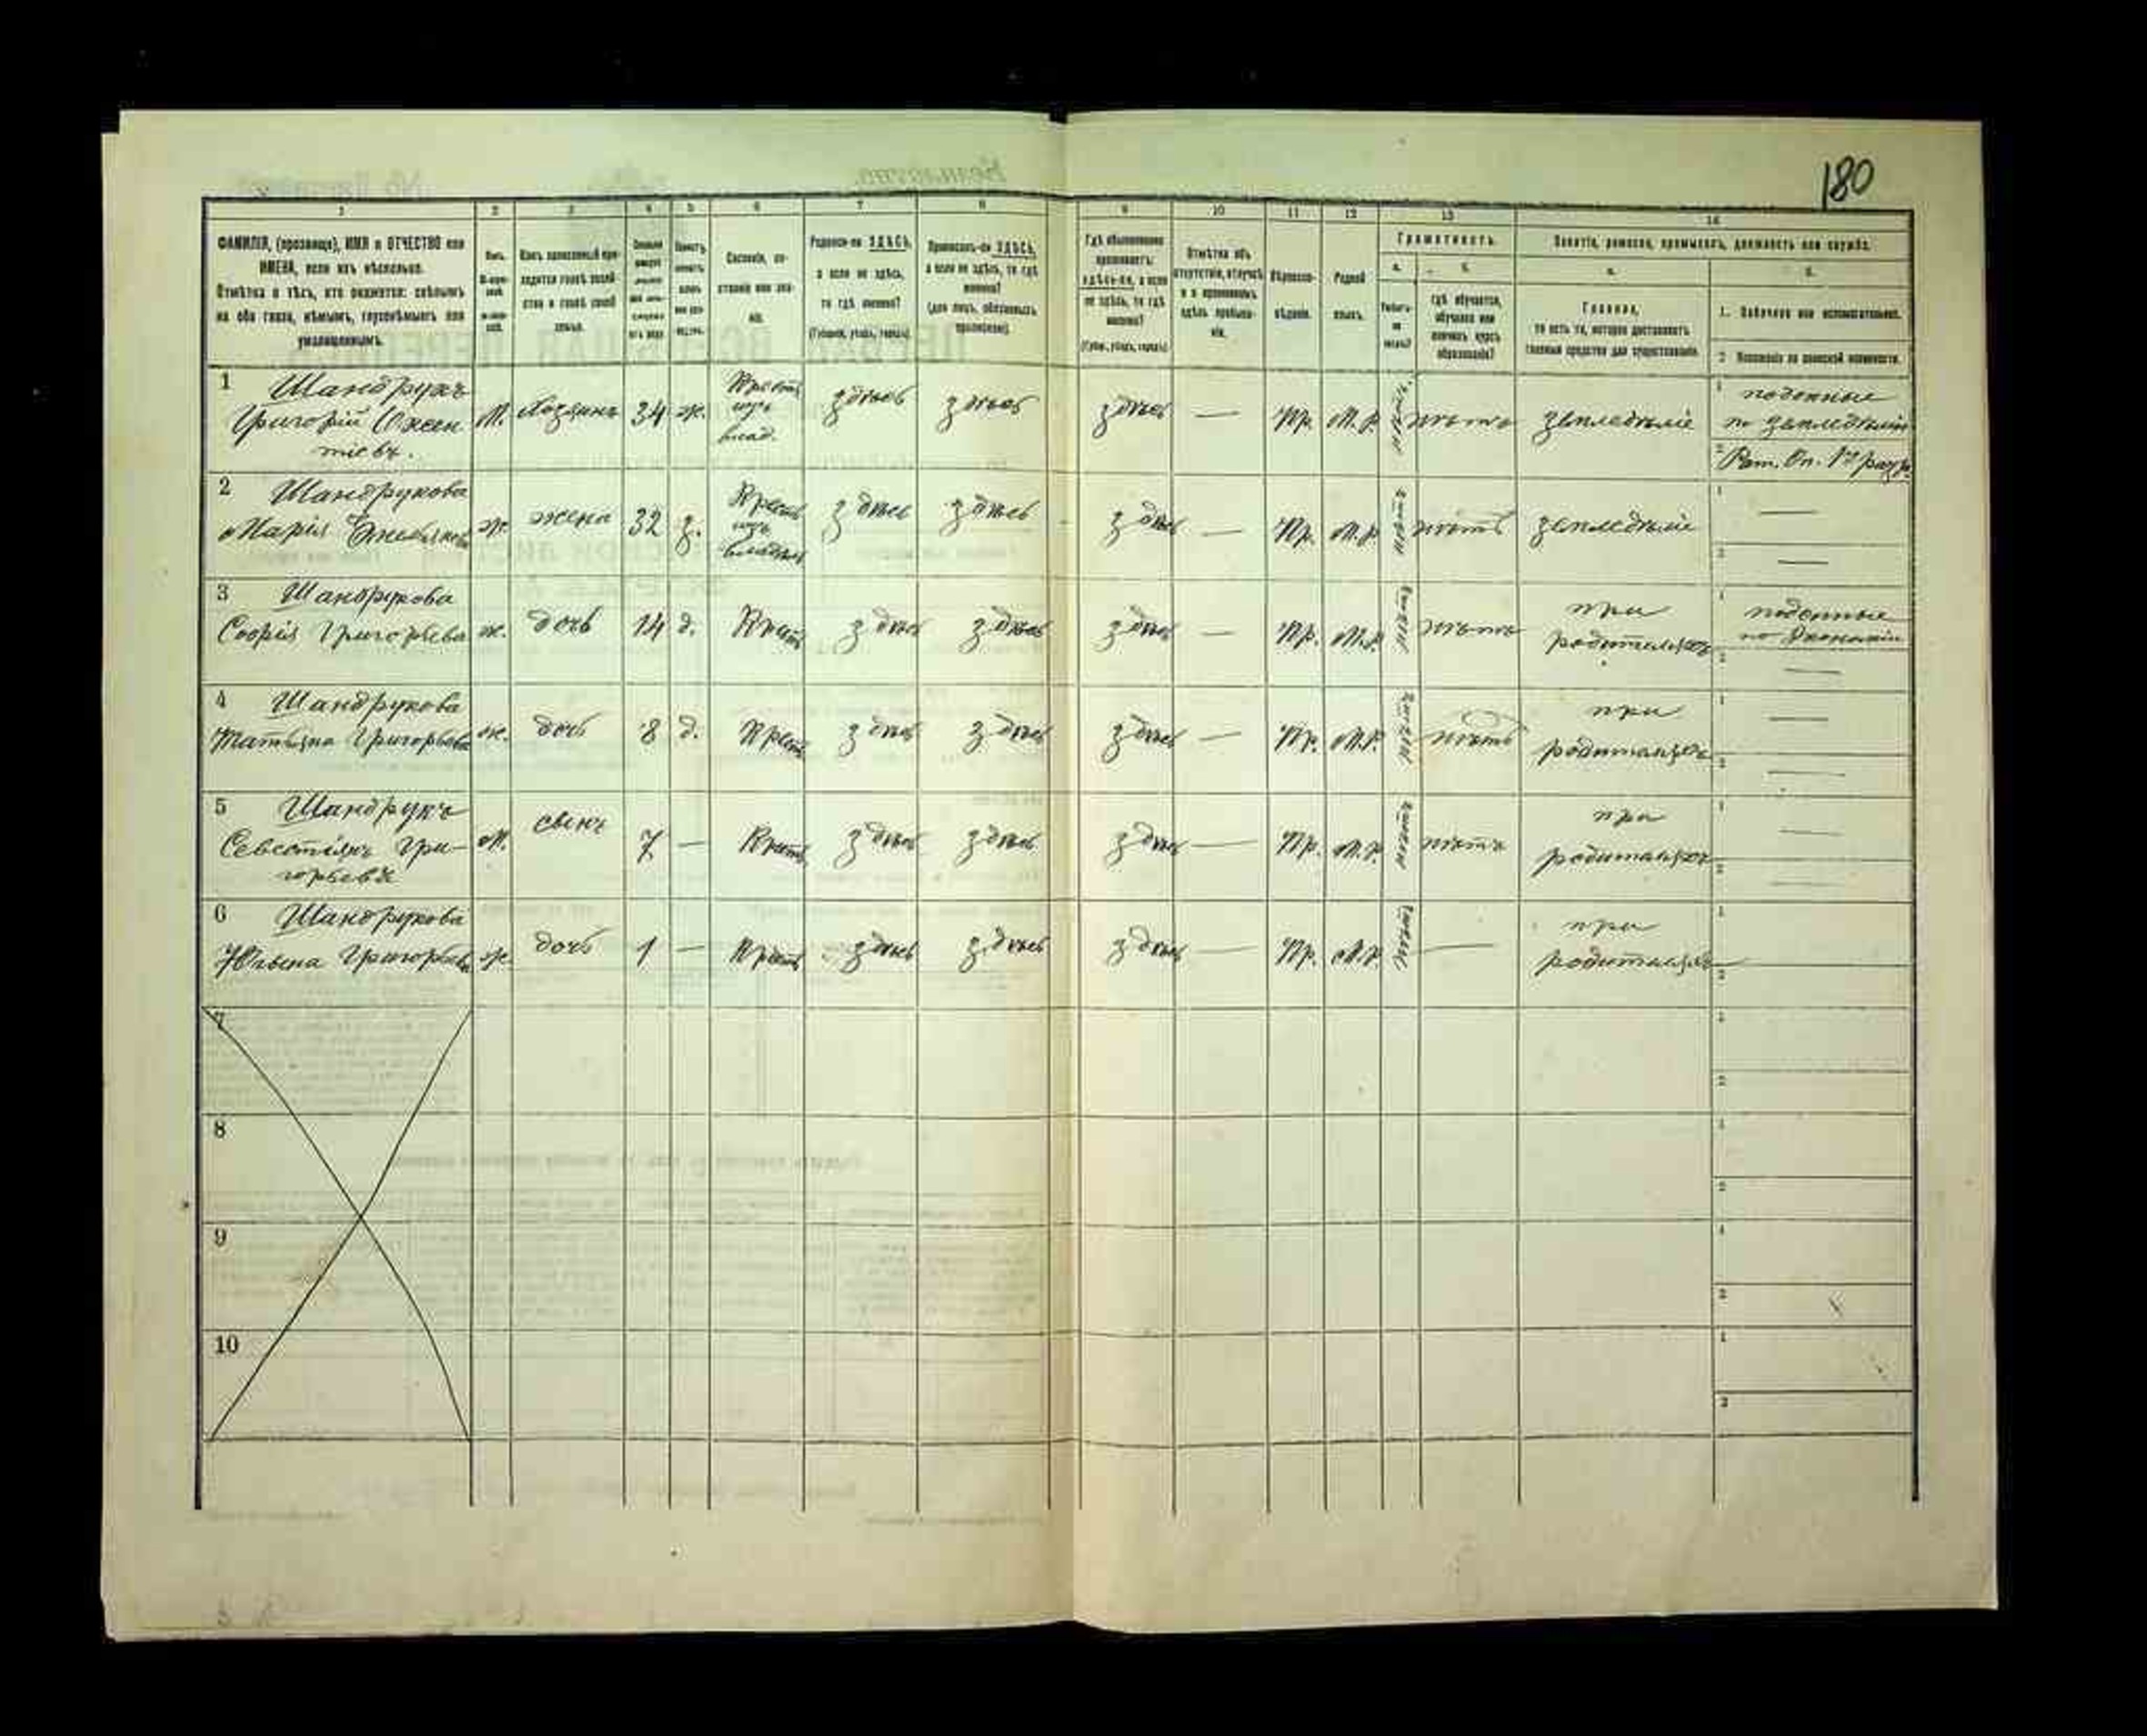 180
1 2 3 4 5 6 7 8 9 10 11 12 13 14
ФАМИЛІЯ, (прозвище), ИМЯ и ОТЧЕСТВО или
ИМЕНА, если ихъ нѣсколько.
Отмѣтка о тѣхъ, кто окажется: слѣпымъ
на оба глаза, нѣмымъ, глухонѣмымъ или
умалишеннымъ.
Полъ.
Какъ записанный при-
ходится главѣ хозяй-
ства и главѣ своей
семьи.
Сословіе, со-
стояніе или зва-
ніе.
Родился-ли ЗДѢСЬ,
а если не здѣсь,
то гдѣ именно?
(Губернія, уѣздъ, городъ)
Приписанъ-ли ЗДѢСЬ,
а если не здѣсь, то гдѣ
именно?
(для лицъ, обязанныхъ
припискою)
Гдѣ обыкновенно
проживаетъ:
здѣсь-ли, а если
не здѣсь, то гдѣ
именно?
(Губерн., уѣздъ, городъ)
Отмѣтка объ
отсутствіи, отлучкѣ
и о временномъ
здѣсь пребыва-
ніи.
Вѣроиспо-
вѣданіе.
Родной
языкъ.
Грамотность.
а. б.
Умѣетъ-
ли
читать?
гдѣ обучается,
обучался или
кончилъ курсъ
образованія?
Занятіе, ремесло, промыселъ, должность или служба.
а. б.
Главное,
то есть то, которое доставляетъ
главныя средства для существованія.
1. Побочное или вспомогательное.
2 Положеніе по воинской повинности.
1 Шандрукъ
Григорій Оксен
тіевъ.
М. Хозяинъ 34 ж. Крестъ изъ влад. здѣсь здѣсь здѣсь — Пр. М.Р. нѣтъ земледѣліе
1 поденные
по земледѣлію
2 Рат. Оп. 1го разр.
2 Шандрукова
Марія
ж. жена 32 з. Крестъ изъ здѣсь здѣсь здѣсь — Пр. М.Р. нѣтъ земледѣліе
1 —
2 —
3 Шандрукова
Софія Григорьева
ж. дочь 14 д. Крестъ здѣсь здѣсь здѣсь — Пр. М.Р. нѣтъ при
родителяхъ
1 поденные
по Экономіи
2 —
4 Шандрукова
Татьяна Григорьева
ж. дочь 8 д. Крестъ здѣсь здѣсь здѣсь — Пр. М.Р. нѣтъ при
родителяхъ
1 —
2 —
5 Шандрукъ
Севестіянъ Гри-
горьевъ
М. свинъ 7 — Крестъ здѣсь здѣсь здѣсь — Пр. М.Р. нѣтъ при
родителяхъ
1 —
2 —
6 Шандрукова
Юльяна Григорьева
ж. дочь 1 — Крестъ здѣсь здѣсь здѣсь — Пр. М.Р. — при
родителяхъ
1
2
7
1
2
8
1
2
9
1
2
10
1
2